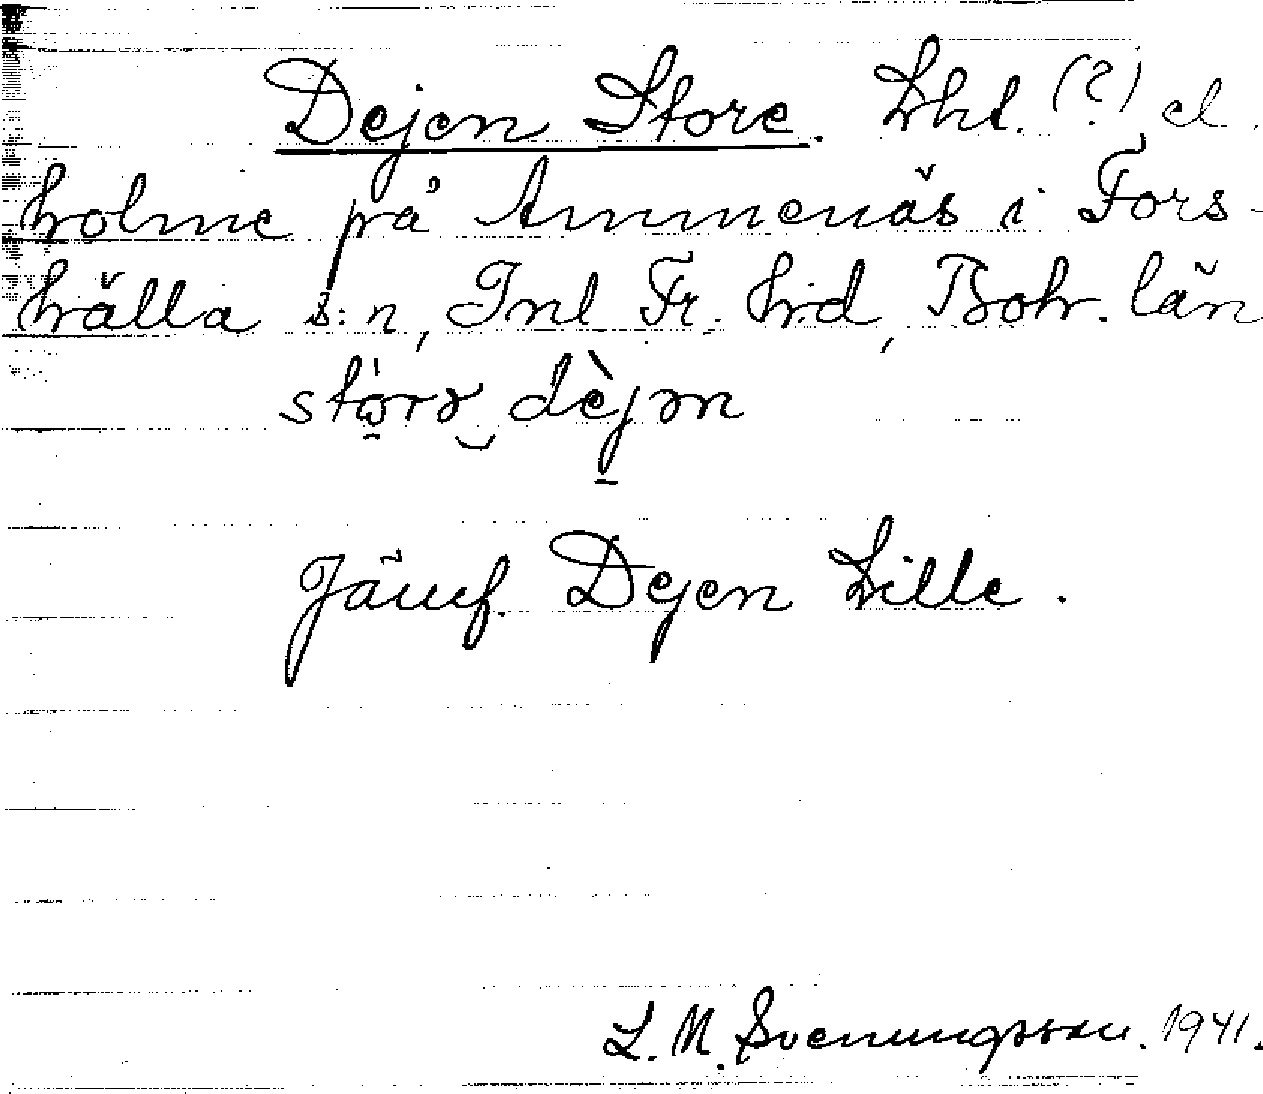 Dejen Store. Lht. (?) el.
holme på Ammenäs i Fors-
hälla s:n, Inl Fr. hd, Boh. län
störə dèjən
Jämf. Dejen Lille.
L. M. Svenungsson. 1941.